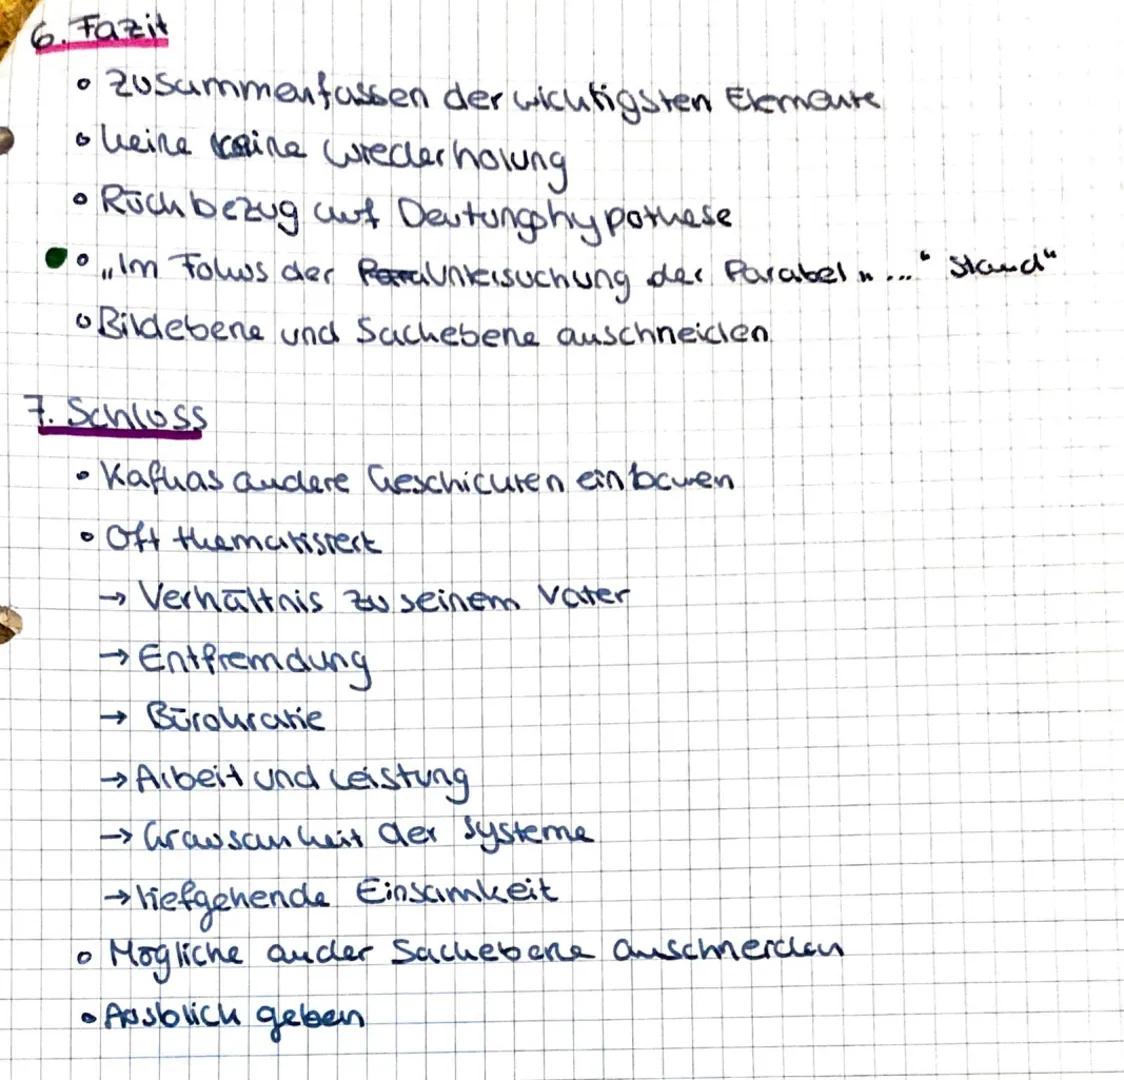 6. Fazit
• Zusammenfassen der wichtigsten Elemente
• keine keine Wiederholung
• Rückbezug auf Deutungshypothese
• „Im Fokus der Untersuchung der Parabel „..." stand"
• Bildebene und Sachebene auschneiden
7. Schluss
• Kafkas andere Geschichten einbauen
• Oft thematisiert
→ Verhältnis zu seinem Vater
→ Entfremdung
→ Bürokratie
→ Arbeit und Leistung
→ Grausamkeit der Systeme
→ tiefgehende Einsamkeit
• Mögliche ander Sachebene auschneiden
• Ausblick geben